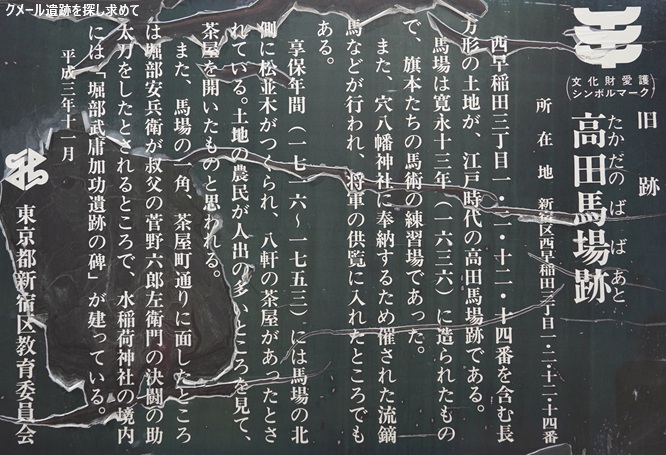 クメール遺跡を探し求めて
(文化財愛護
シンボルマーク)
旧跡
たかだのばばあと
高田馬場跡
所在地 新宿区西早稲田三丁目一・二・十二・十四番
西早稲田三丁目一・二・十二・十四番を含む長
方形の土地が、江戸時代の高田馬場跡である。
馬場は寛永十三年(一六三六)に造られたもの
で、旗本たちの馬術の練習場であった。
また、穴八幡神社に奉納するため催された流鏑
馬などが行われ、将軍の供覧に入れたところでも
ある。
享保年間(一七一六〜一七五三)には馬場の北
側に松並木がつくられ、八軒の茶屋があったとさ
れている。土地の農民が人出の多いところを見て、
茶屋を開いたものと思われる。
また、馬場の一角、茶屋町通りに面したところ
は堀部安兵衛が叔父の菅野六郎左衛門の決闘の助
太刀をしたとされるところで、水稲荷神社の境内
には「堀部武庸加功遺跡の碑」が建っている。
平成三年十一月
東京都新宿区教育委員会